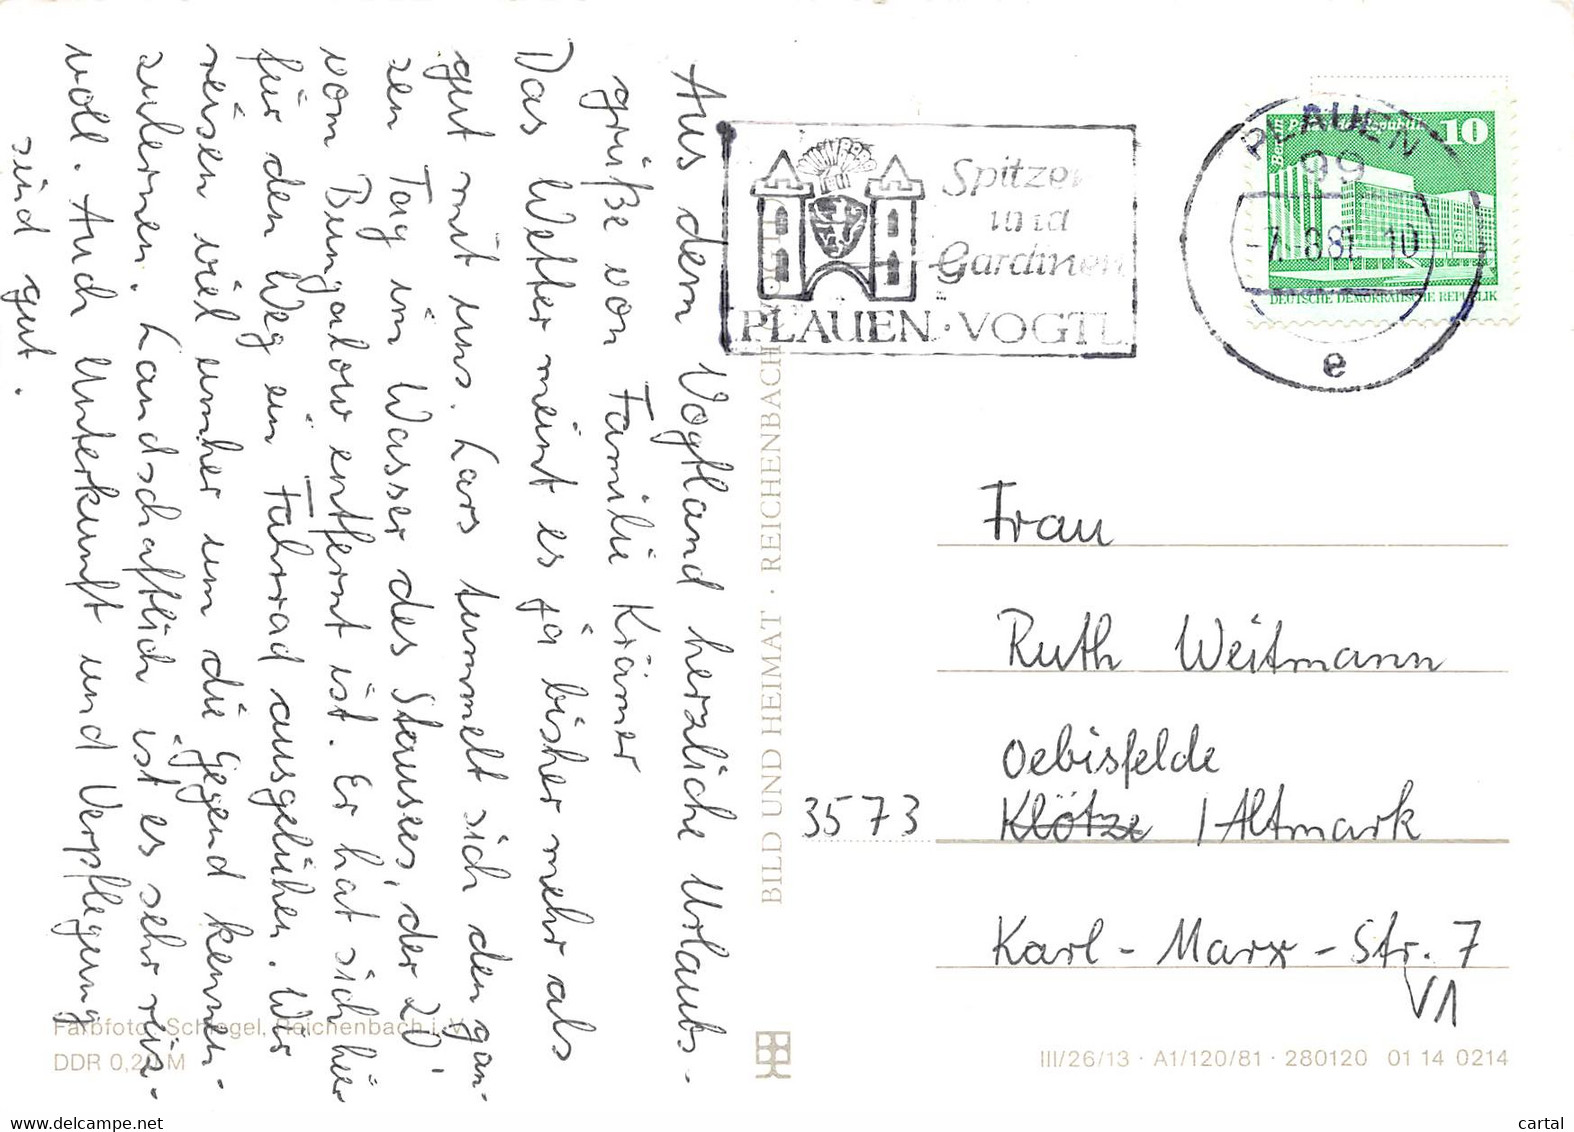 Aus dem Vogtland herzliche Urlaubs-
grüße von Familie Krämer
Das Wetter meint es ja bisher mehr als
gut mit uns. Lars tummelt sich den gan-
zen Tag im Wasser des Stausees, der 20'
vom Bungalow entfernt ist. Er hat sich hier
für den Weg ein Fahrrad ausgeliehen. Wir
reisen viel umher um die Gegend kennen-
zulernen. Landschaftlich ist es sehr reiz-
voll. Auch Unterkunft und Verpflegung
sind gut.
Farbfoto: Schlegel, Reichenbach i. V.
DDR 0,20 M
BILD UND HEIMAT · REICHENBACH
Spitzen
und
Gardinen
PLAUEN · VOGTL
PLAUEN
99
10
e
Berlin
10
DEUTSCHE DEMOKRATISCHE REPUBLIK
Frau
Ruth Weitmann
Oebisfelde
3573 Klötze / Altmark
Karl-Marx-Str. 7
V1
III/26/13 · A1/120/81 · 280120 01 14 0214
www.delcampe.net
cartal